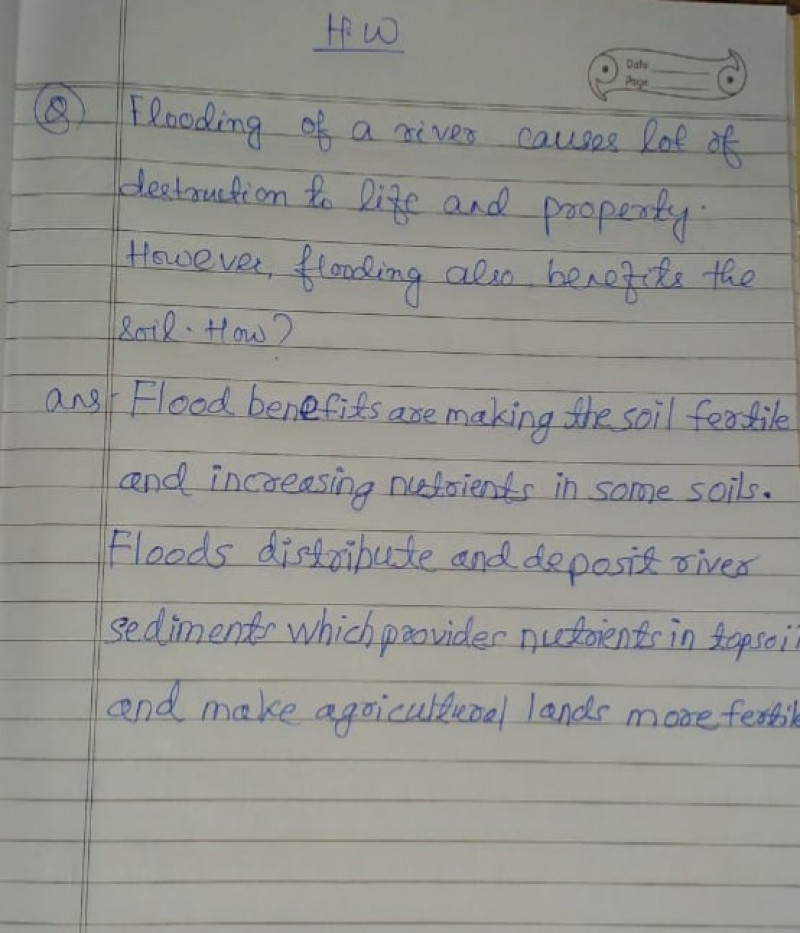 H.W
Date
Page
Q Flooding of a river causes lot of
destruction to life and property.
However, flooding also benefits the
soil. How?
ans- Flood benefits are making the soil fertile
and increasing nutrients in some soils.
Floods distribute and deposit river
sediments which provides nutrients in topsoi
and make agricultural lands more fertil